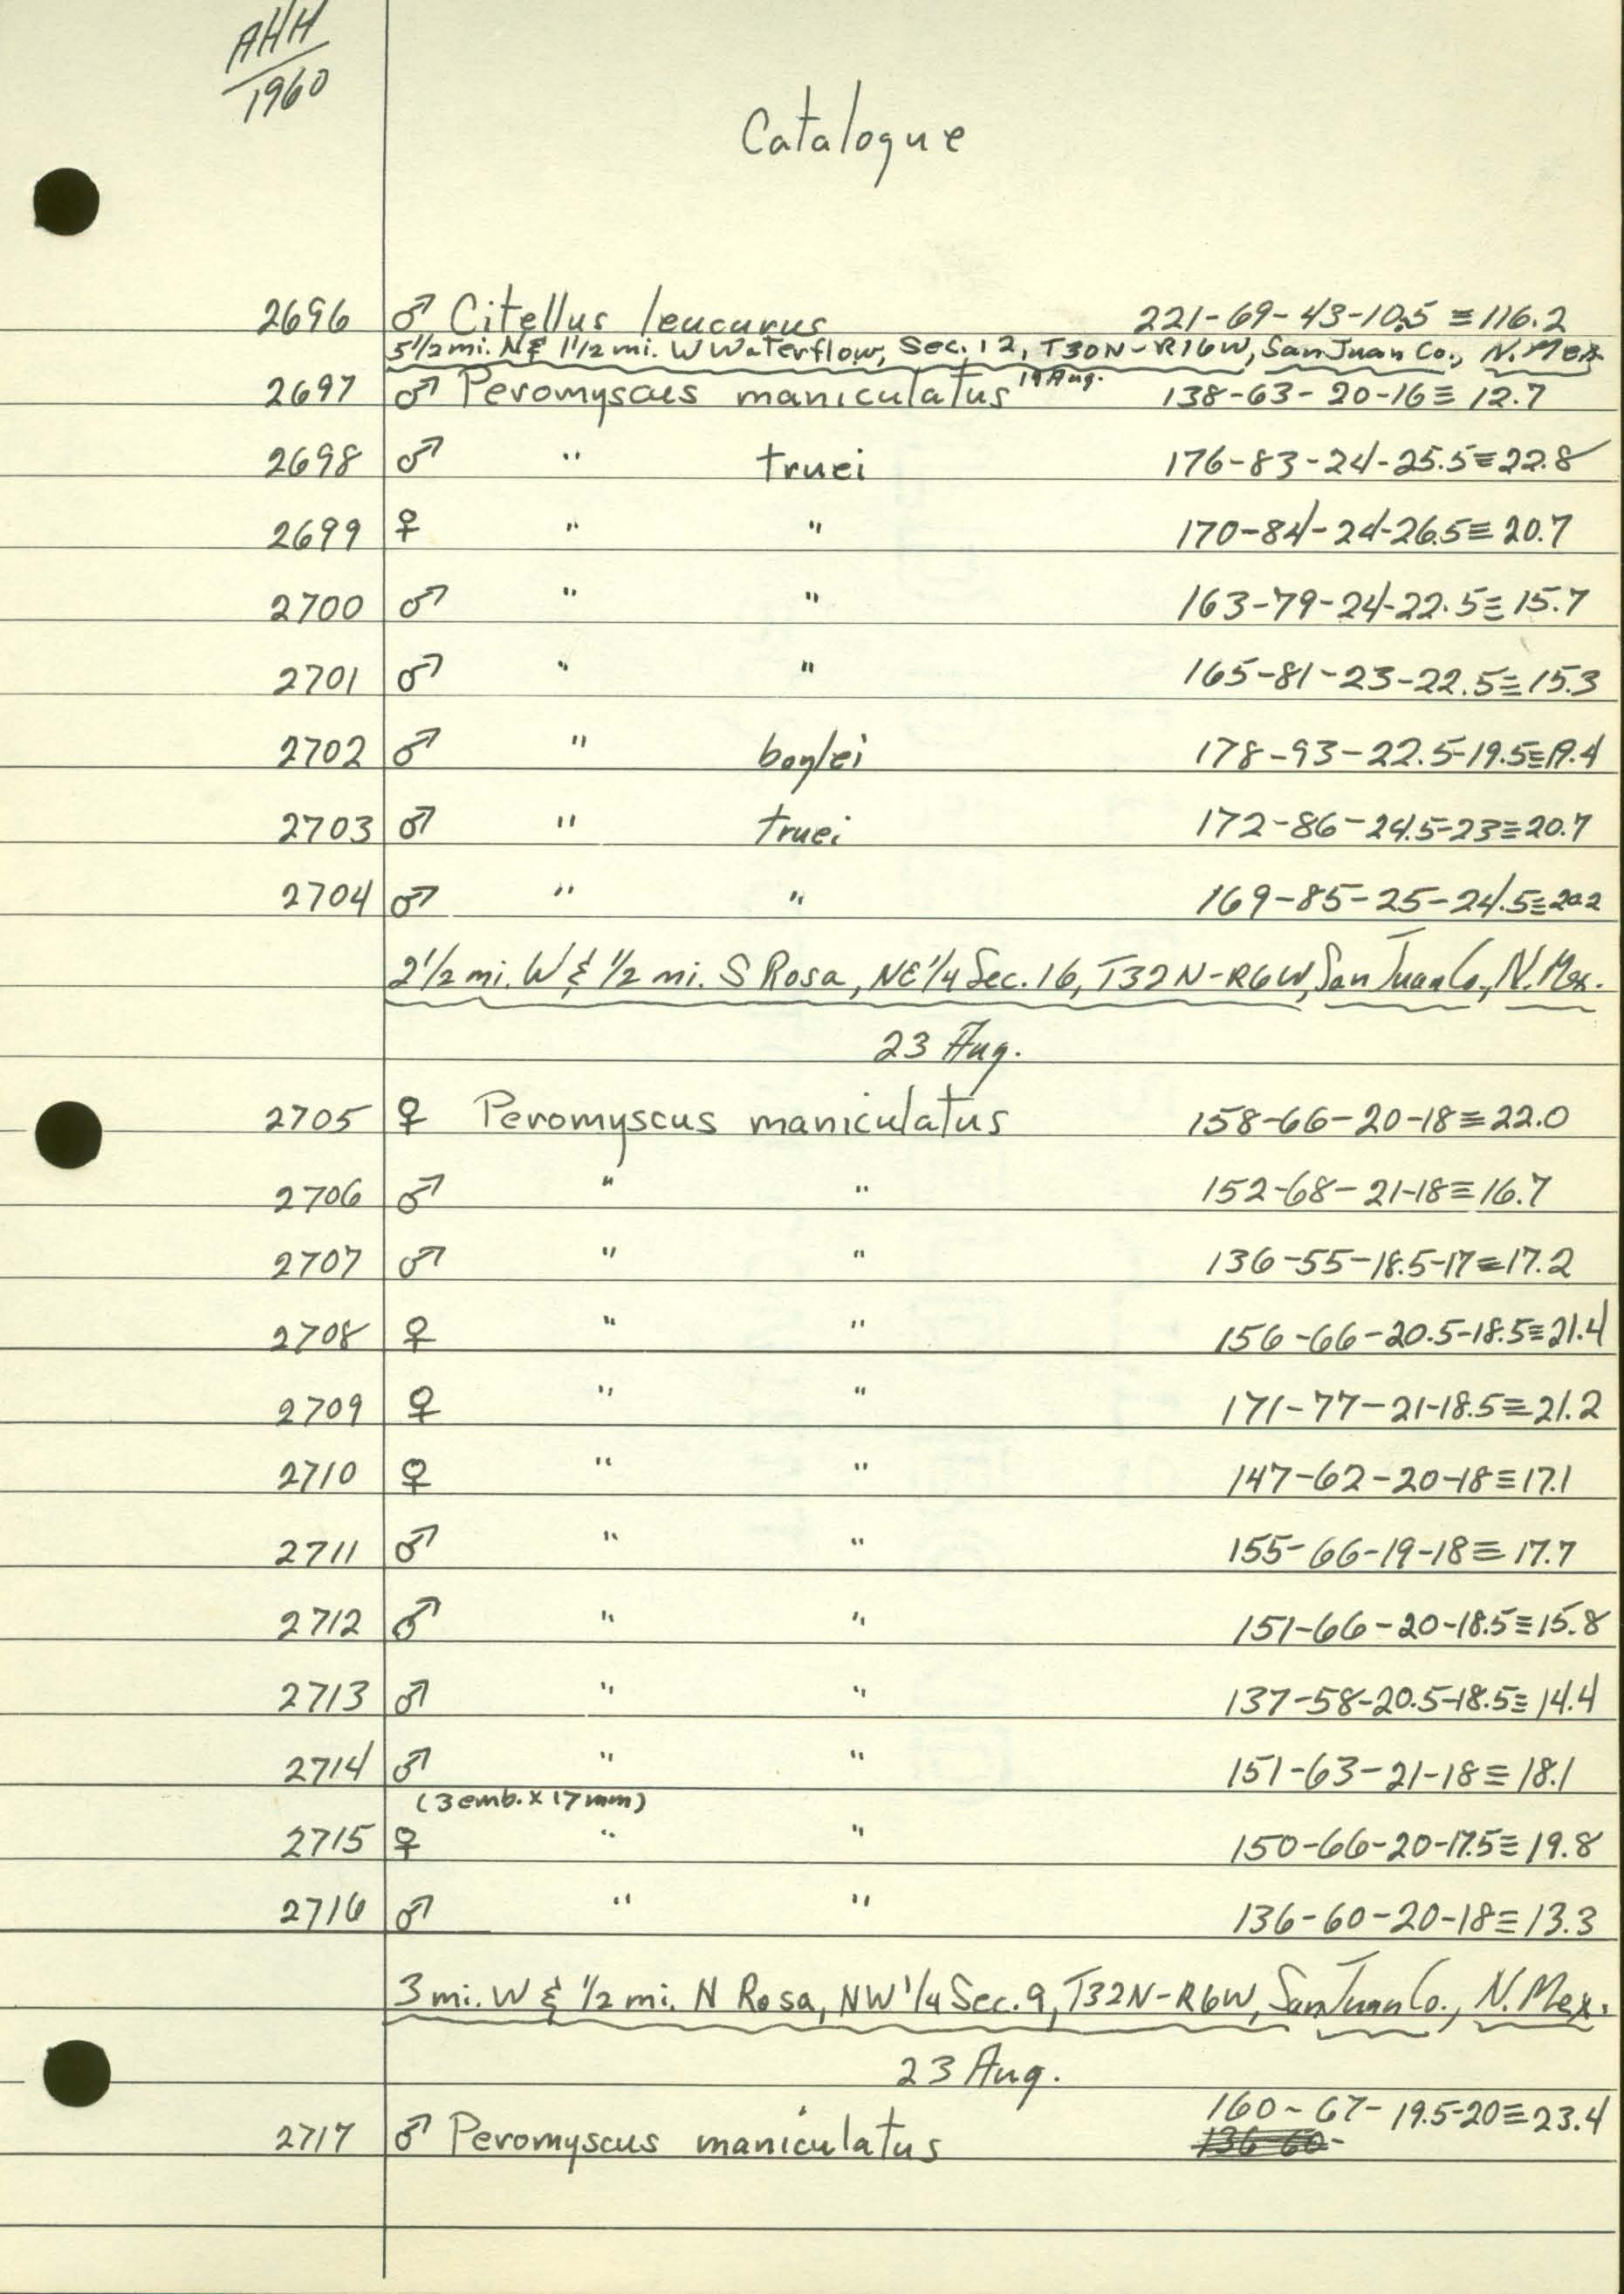 AHH
1960
Catalogue
2696 ♂ Citellus leucurus 221-69-43-10.5 ≡ 116.2
5 1/2 mi. N & 1 1/2 mi. W Waterflow, Sec. 12, T30N-R16W, San Juan Co., N. Mex.
19 Aug.
2697 ♂ Peromyscus maniculatus 138-63-20-16 ≡ 12.7
2698 ♂ " truei 176-83-24-25.5 ≡ 22.8
2699 ♀ " " 170-84-24-26.5 ≡ 20.7
2700 ♂ " " 163-79-24-22.5 ≡ 15.7
2701 ♂ " " 165-81-23-22.5 ≡ 15.3
2702 ♂ " boylei 178-93-22.5-19.5 ≡ 19.4
2703 ♂ " truei 172-86-24.5-23 ≡ 20.7
2704 ♂ " " 169-85-25-24.5 ≡ 20.2
2 1/2 mi. W & 1/2 mi. S Rosa, NE 1/4 Sec. 16, T32N-R6W, San Juan Co., N. Mex.
23 Aug.
2705 ♀ Peromyscus maniculatus 158-66-20-18 ≡ 22.0
2706 ♂ " " 152-68-21-18 ≡ 16.7
2707 ♂ " " 136-55-18.5-17 ≡ 17.2
2708 ♀ " " 156-66-20.5-18.5 ≡ 21.4
2709 ♀ " " 171-77-21-18.5 ≡ 21.2
2710 ♀ " " 147-62-20-18 ≡ 17.1
2711 ♂ " " 155-66-19-18 ≡ 17.7
2712 ♂ " " 151-66-20-18.5 ≡ 15.8
2713 ♂ " " 137-58-20.5-18.5 ≡ 14.4
2714 ♂ " " 151-63-21-18 ≡ 18.1
(3 emb. x 17 mm)
2715 ♀ " " 150-66-20-17.5 ≡ 19.8
2716 ♂ " " 136-60-20-18 ≡ 13.3
3 mi. W & 1/2 mi. N Rosa, NW 1/4 Sec. 9, T32N-R6W, San Juan Co., N. Mex.
23 Aug.
160-67-19.5-20 ≡ 23.4
2717 ♂ Peromyscus maniculatus 136-60-